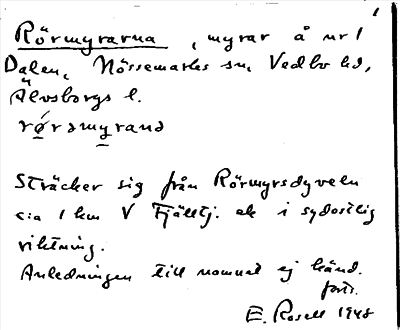 1
Rörmyrarna, myrar å nr 1
Dalen, Nössemarks sn, Vedbo hd,
Älvsborgs l.
rǿrəmyrana
Sträcker sig från Rörmyrsdyveln
c:a 1 km V Fjälltj. ek i sydostlig
riktning.
Anledningen till namnet ej känd.
forts.
E. Rosell 1948